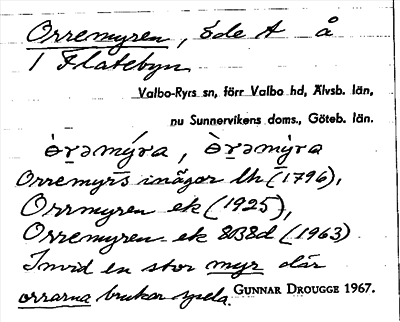 Orremyren, öde t å
1 Flatebyn
Valbo-Ryrs sn, förr Valbo hd, Älvsb. län,
nu Sunnervikens doms., Göteb. län.
òr̲əmýra, òr̲əmỳra
Orremyrs inägor lh (1796),
Orrmyren ek (1925),
Orremyren ek 8B8d (1963)
Invid en stor myr där
orrarna brukar spela. GUNNAR DROUGGE 1967.